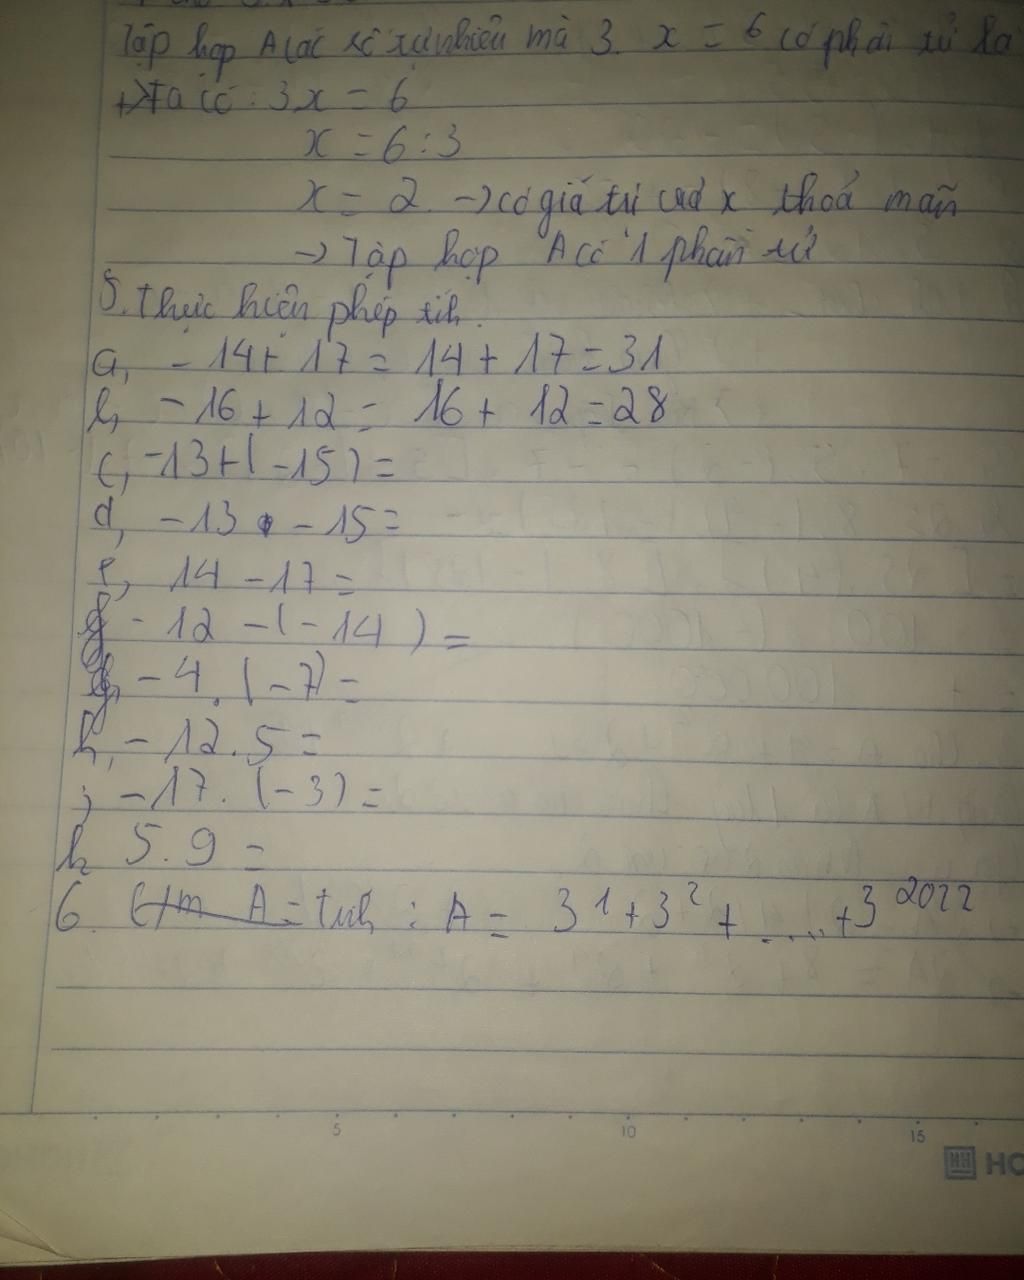 Tập hợp A các số tự nhiên mà 3. x = 6 có phần tử là
+) Ta có : 3x = 6
x = 6 : 3
x = 2 → có giá trị của x thoả mãn
→ Tập hợp A có 1 phần tử
5. Thực hiện phép tính.
a, - 14 + 17 = 14 + 17 = 31
b, - 16 + 12 = 16 + 12 = 28
c, -13 + ( -15 ) =
d, - 13 - 15 =
e, 14 - 17 =
f - 12 - ( - 14 ) =
g, - 4 . ( - 7) =
h, - 12 . 5 =
i - 17 . (- 3 ) =
k 5 . 9 =
6. tính : A = 3¹ + 3² + .... + 3²⁰²²
5 10 15
HO